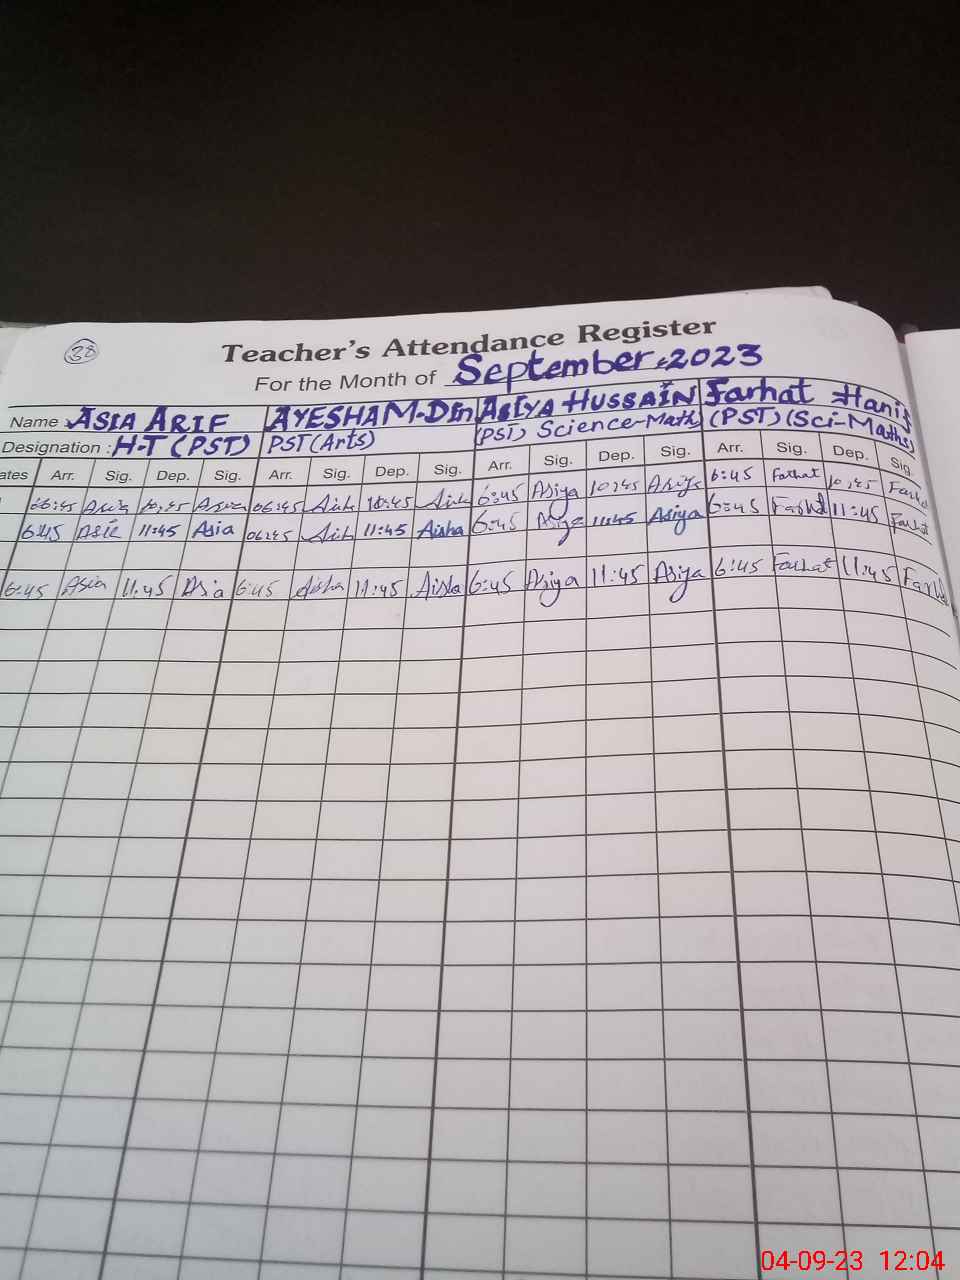 38
Teacher's Attendance Register
For the Month of September.2023
Name ASIA ARIF AYESHA M-Din ASIYA HUSSAIN Farhat Hanif
Designation : H-T (PST) PST (Arts) (PST) Science-Math (PST) (Sci-Maths)
ates Arr. Sig. Dep. Sig. Arr. Sig. Dep. Sig. Arr. Sig. Dep. Sig. Arr. Sig. Dep. Sig.
06:45 10:45 06:45 10:45 6:45 Asiya 10:45 Asiya 6:45 Farhat 10:45
6:45 Asia 11:45 Asia 06:45 11:45 Aisha 6:45 Asiya 11:45 Asiya 6:45 Farhat 11:45 Farhat
6:45 Asia 11:45 Asia 6:45 Aisha 11:45 Aisha 6:45 Asiya 11:45 Asiya 6:45 Farhat 11:45 Farhat
04-09-23 12:04